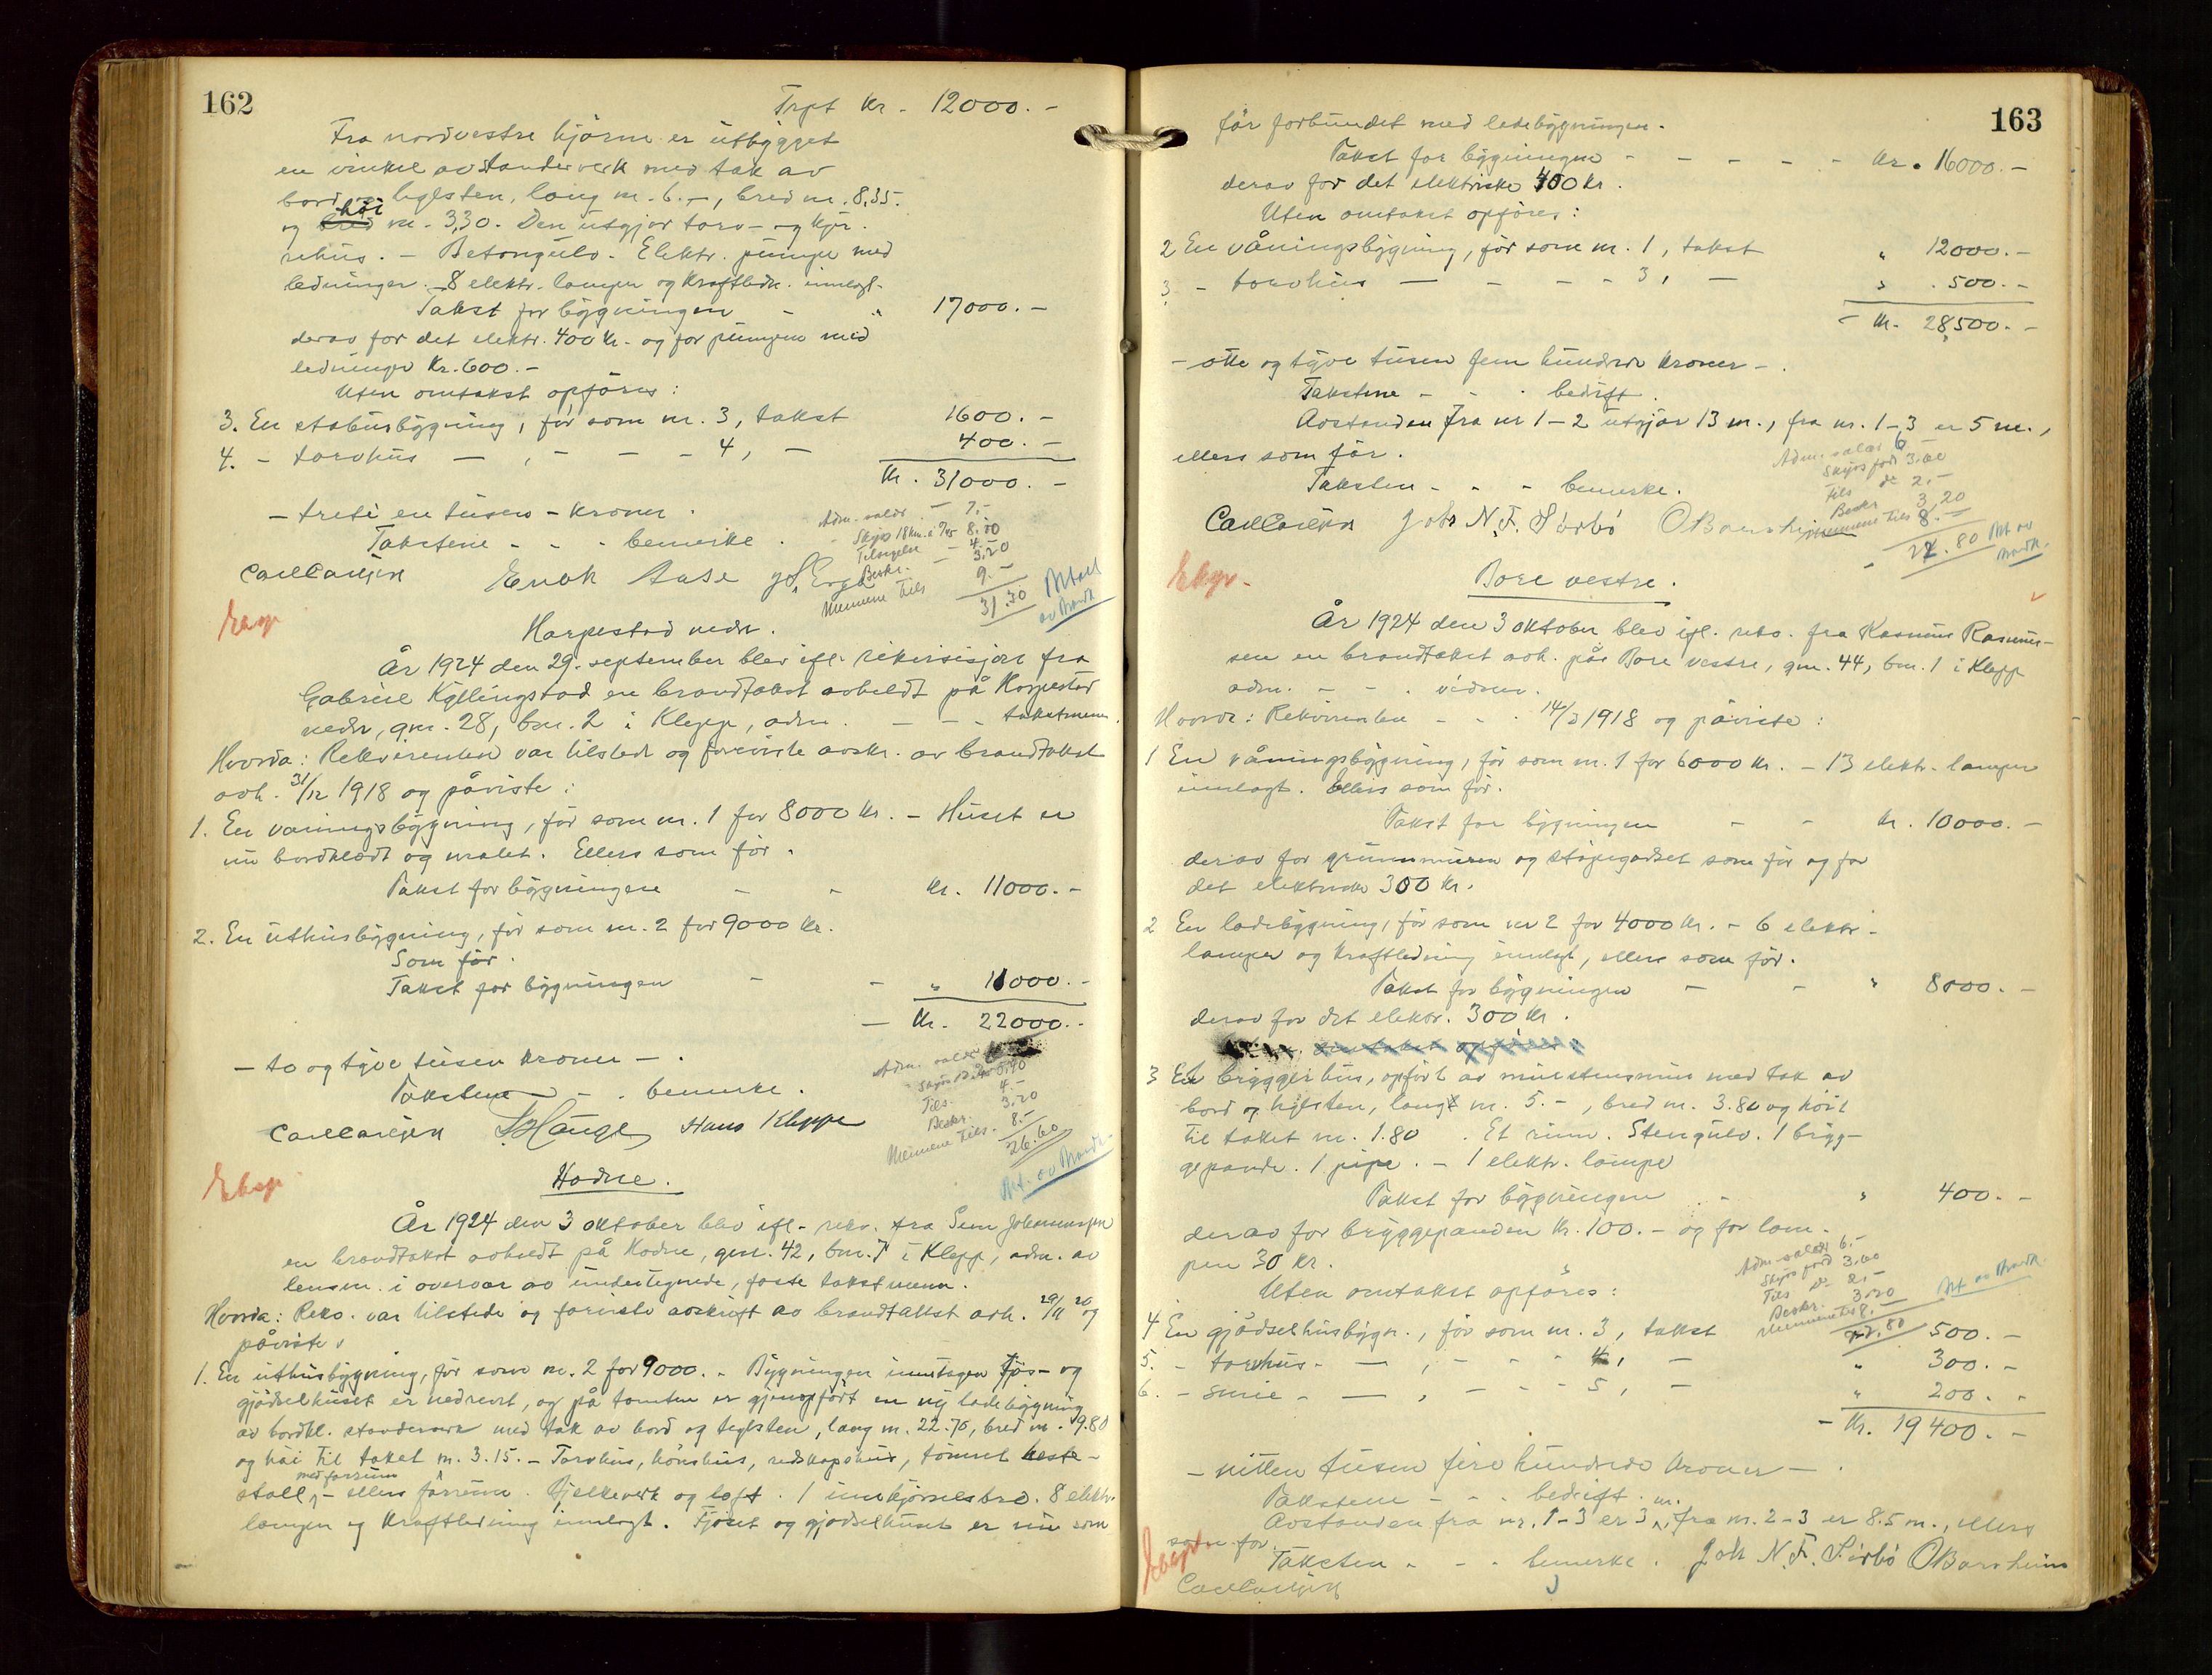 162
Trpt kr. 12000.-
Fra nordvestre hjörne er utbygget
en vinkel av standerverk med tak av
bord og teglsten, lang m. 6.-, bred m. 8,35.
og bred höi m. 3,30. Den utgjör torv- og kjör-
rehus. - Betongulv. Elektr. pumpe med
ledninger. - 8 elektr. lamper og kraftledn. innlagt.
Takst for bygningen - " 17000.-
derav for det elektr. 400 kr. og for pumpen med
ledninger kr. 600.-
Uten omtakst opföres:
3. En stabursbygning, för som nr. 3, takst 1600.-
4. - torvhus - , - - - 4, - 400.-
Kr. 31000.-
- treti en tusen - kroner.
Taksten - - - bemerke.
Adm. salær - 7.-
Skyss 18 km.
Tilsigelse - 4.-
Beskr. - 3.20
Mennene tils 9.-
31.30
Bet. av Brandk.
Carl Carlsen Enok Aase
Eksp.
Harpestad nedre.
År 1924 den 29. september blev ifl. rekvisisjon fra
Gabriel Kyllingstad en brandtakst avholdt på Harpestad
nedre, gnr. 28, bnr. 2 i Klepp, adm. - - - takstmenn.
Hvorda: Rekvirenten var tilstede og foreviste avskr. av brandtakst
avh. 31/12 1918 og påviste:
1. En våningsbygning, för som nr. 1 for 8000 kr. - Huset er
nu bordklædt og malet. Ellers som för.
Takst for bygningen - - kr. 11000.-
2. En uthusbygning, för som nr. 2 for 9000 kr.
Som för.
Takst for bygningen - - " 11000.-
- Kr. 22000.-
- to og tyve tusen kroner -.
Taksten - - - bemerke.
Adm. salær
Tils. 4.-
Beskr. 3.20
Mennene tils. 8.-
26.60
Bet. av Brandk.
Carl Carlsen Hauge Hans Kleppe
Eksp.
Hodne.
År 1924 den 3 oktober blev ifl. rekv. fra Sem Johannesen
en brandtakst avholdt på Hodne, gnr. 42, bnr. 7 i Klepp, adm. av
lensm. i overvær av undertegnede, faste takstmenn.
Hvorda: Rekv. var tilstede og foreviste avskrift av brandtakst avh. 29/11 20 og
påviste:
1. En uthusbygning, för som nr. 2 for 9000. - Bygningen inntagen fjös- og
gjödselhuset er nedrevet, og på tomten er gjenopfört en ny ladebygning
av bordkl. standerverk med tak av bord og teglsten, lang m. 22.70, bred m. 9.80
og höi til taket m. 3.15. - Torvhus, hönshus, redskapshus, tömret heste-
stall, med forrum - ellers fårerum. Bjelkeverk og loft. 1 innkjörselsbro. 8 elektr.
lamper og kraftledning innlagt. Fjöset og gjödselhuset er nu som
163
för forbundet med ladebygningen.
Takst for bygningen - - - - - kr. 16000.-
derav for det elektriske 400 kr.
Uten omtakst opföres:
2 En våningsbygning, för som nr. 1, takst " 12000.-
3 - torvhus - - - - 3, - " 500.-
- Kr. 28500.-
- otte og tyve tusen fem hundrede kroner -.
Takstene - - - bedrift.
Avstanden fra nr 1-2 utgjör 13 m., fra nr. 1-3 er 5 m.,
ellers som för.
Taksten - - - bemerke.
Adm. salær 6.-
Skyss ford 3.60
Tils do 2.-
Beskr. 3,20
Mennene tils 8.-
22.80
Bet av Brandk.
Carl Carlsen Joh N. F. Sörbö O Barsheim
Eksp.
Bore vestre.
År 1924 den 3 oktober blev ifl. rekv. fra Rasmus Rasmus-
sen en brandtakst avh. på Bore vestre, gnr. 44, bnr. 1 i Klepp
adm. - - -
Hvorda: Rekvirenten - - - 14/3 1918 og påviste:
1 En våningsbygning, för som nr. 1 for 6000 kr. - 13 elektr. lamper
innlagt. Ellers som för.
Takst for bygningen - - kr. 10000.-
derav for grunnmuren og stöpegodset som för og for
det elektriske 300 kr.
2 En ladebygning, för som nr 2 for 4000 kr. - 6 elektr.
lamper og kraftledning innlagt, ellers som för.
Takst for bygningen - - " 8000.-
derav for det elektr. 300 kr.
Uten omtakst opföres:
3 Et bryggerhus, opfört av murstensmur med tak av
bord og teglsten, langt m. 5.-, bred m. 3.80 og höit
til taket m. 1.80. Et rum. Stengulv. 1 bryg-
gepande. 1 pipe. - 1 elektr. lampe
Takst for bygningen - " 400.-
derav for bryggepanden kr. 100.- og for lam-
pen 30 kr.
Uten omtakst opföres:
Adm. salær 6.-
Skyss ford 3.60
Tils do 2.-
Beskr. 3.20
Mennene tils 8.-
22.80
Bet av Brandk.
4 En gjödselhusbygn., för som nr. 3, takst 500.-
5. - torvhus - - , - - - 4, - " 300.-
6. - smie - - , - - - 5, - " 200.-
- Kr. 19400.-
- nitten tusen fire hundrede kroner -.
Takstene - - - bedrift.
Avstanden fra nr. 1-3 er 3 m., fra nr. 2-3 er 8.5 m., ellers
som för.
Taksten - - - bemerke. Joh N. F. Sörbö O Barsheim
Eksp.
Carl Carlsen